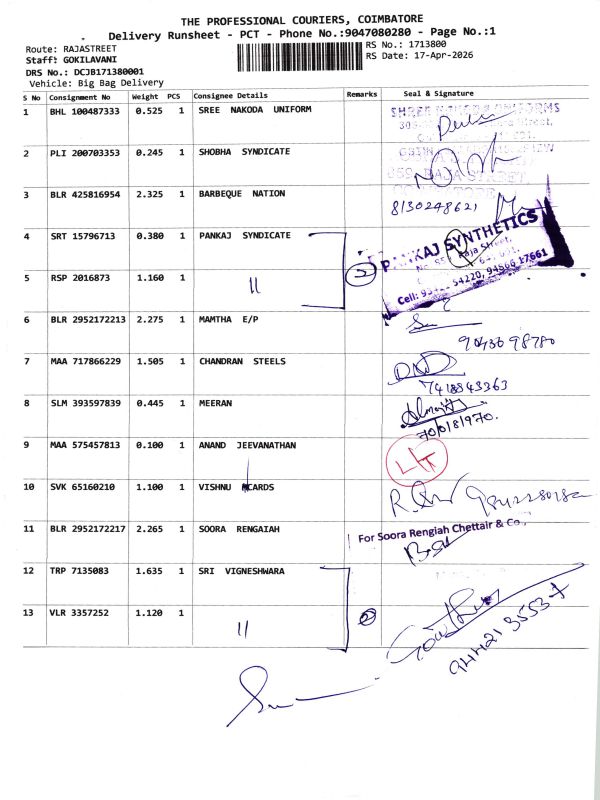 THE PROFESSIONAL COURIERS, COIMBATORE
Delivery Runsheet - PCT - Phone No.:9047080280 - Page No.:1
Route: RAJASTREET
RS No.: 1713800
Staff: GOKILAVANI
RS Date: 17-Apr-2026
DRS No.: DCJB171380001
Vehicle: Big Bag Delivery
S No Consignment No Weight PCS Consignee Details Remarks Seal & Signature
1 BHL 100487333 0.525 1 SREE NAKODA UNIFORM
2 PLI 200703353 0.245 1 SHOBHA SYNDICATE
3 BLR 425816954 2.325 1 BARBEQUE NATION
8130248621
4 SRT 15796713 0.380 1 PANKAJ SYNDICATE
PANKAJ SYNTHETICS
Raja Street,
5 RSP 2016873 1.160 1 11 2
Cell: 54220, 94566 17661
6 BLR 2952172213 2.275 1 MAMTHA E/P
9043698780
7 MAA 717866229 1.505 1 CHANDRAN STEELS
7418843363
8 SLM 393597839 0.445 1 MEERAN
9 MAA 575457813 0.100 1 ANAND JEEVANATHAN
10 SVK 65160210 1.100 1 VISHNU CARDS
11 BLR 2952172217 2.265 1 SOORA RENGAIAH
For Soora Rengiah Chettair & Co.,
12 TRP 7135083 1.635 1 SRI VIGNESHWARA
13 VLR 3357252 1.120 1 11 2
9442135537